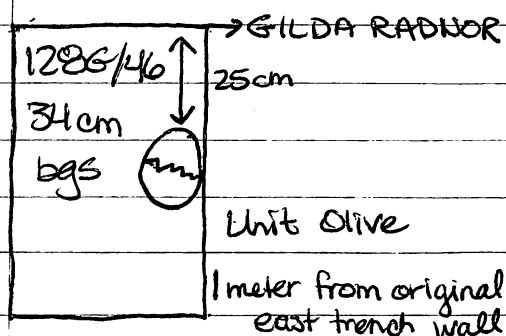 →GILDA RADNOR
128G/46
25cm
34cm
bgs
Unit Olive
1 meter from original
east trench wall